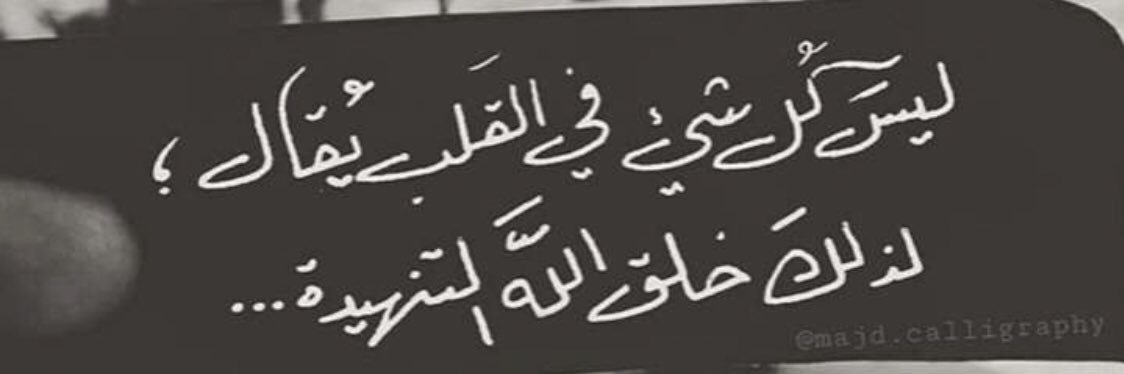 ليسَ كُل شيئ في القَلب يُقال ؛
لذلكَ خلق اللَّه التنهيدة...
@majd.calligraphy